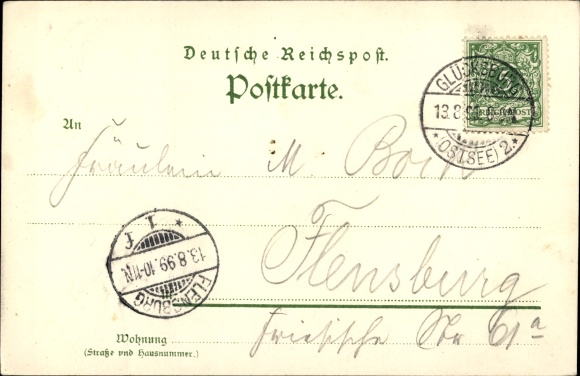 Deutsche Reichspost.
Postkarte.
GLÜCKSBURG
13.8.99
(OSTSEE) 2.
5
REICHSPOST
An
Fräulein M. Bock
* 1 f
13.8.99.10-11N.
FLENSBURG
Flensburg
Wohnung
(Straße und Hausnummer.)
Friesische Str 61a